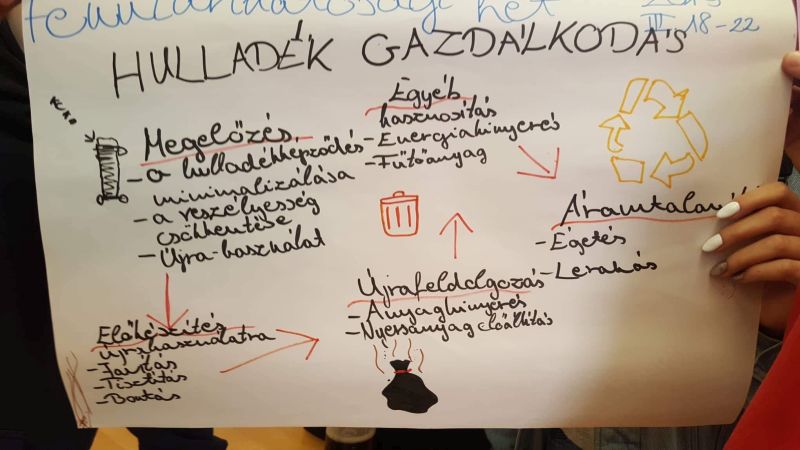 Fenntarthatósági hét
III. 18-22
HULLADÉK GAZDÁLKODÁS
Megelőzés
- a hulladékképződés
minimalizálása
- a veszélyesség
csökkentése
- Újra-használat
Előkészítés
újrahasználatra
- Javítás
- Tisztítás
- Bontás
Újrafeldolgozás
- Anyagkinyerés
- Nyersanyag előállítás
Egyéb
hasznosítás
- Energiakinyerés
- Fűtőanyag
- Égetés
- Lerakás